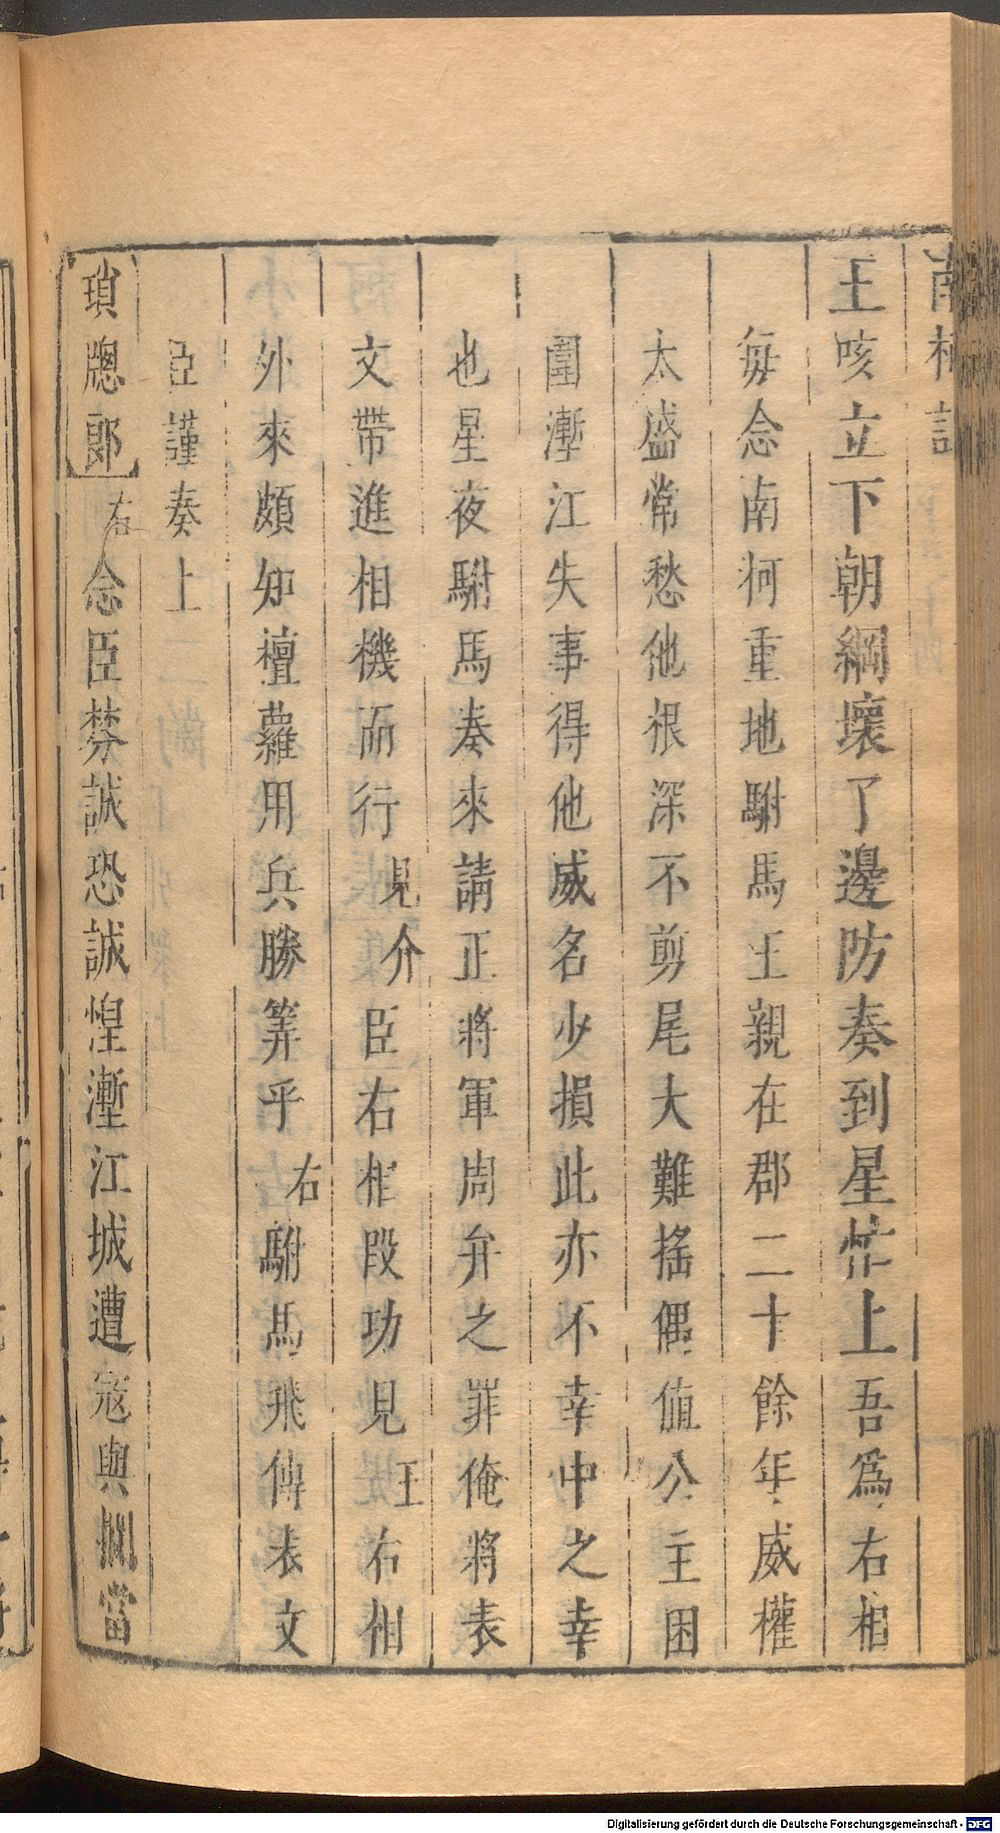 南柯記
王咳立下朝綱壞了邊防奏到星忙上吾爲右相
每念南柯重地駙馬王親在郡二十餘年威權
太盛常愁他根深不剪尾大難搖偶値公主困
圍塹江失事得他威名少損此亦不幸中之幸
也星夜駙馬奏來請正將軍周弁之罪俺將表
文帶進相機而行見介臣右相段功見王右相
外來頗知檀蘿用兵勝筭乎右駙馬飛傳表文
臣謹奏上
瑣牕郎右念臣棼誠恐誠惶塹江城遭寇與攔當
Digitalisierung gefördert durch die Deutsche Forschungsgemeinschaft - DFG